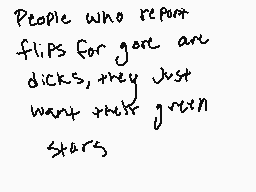 People who report
flips for gore are
dicks, they Just
want their green
stars